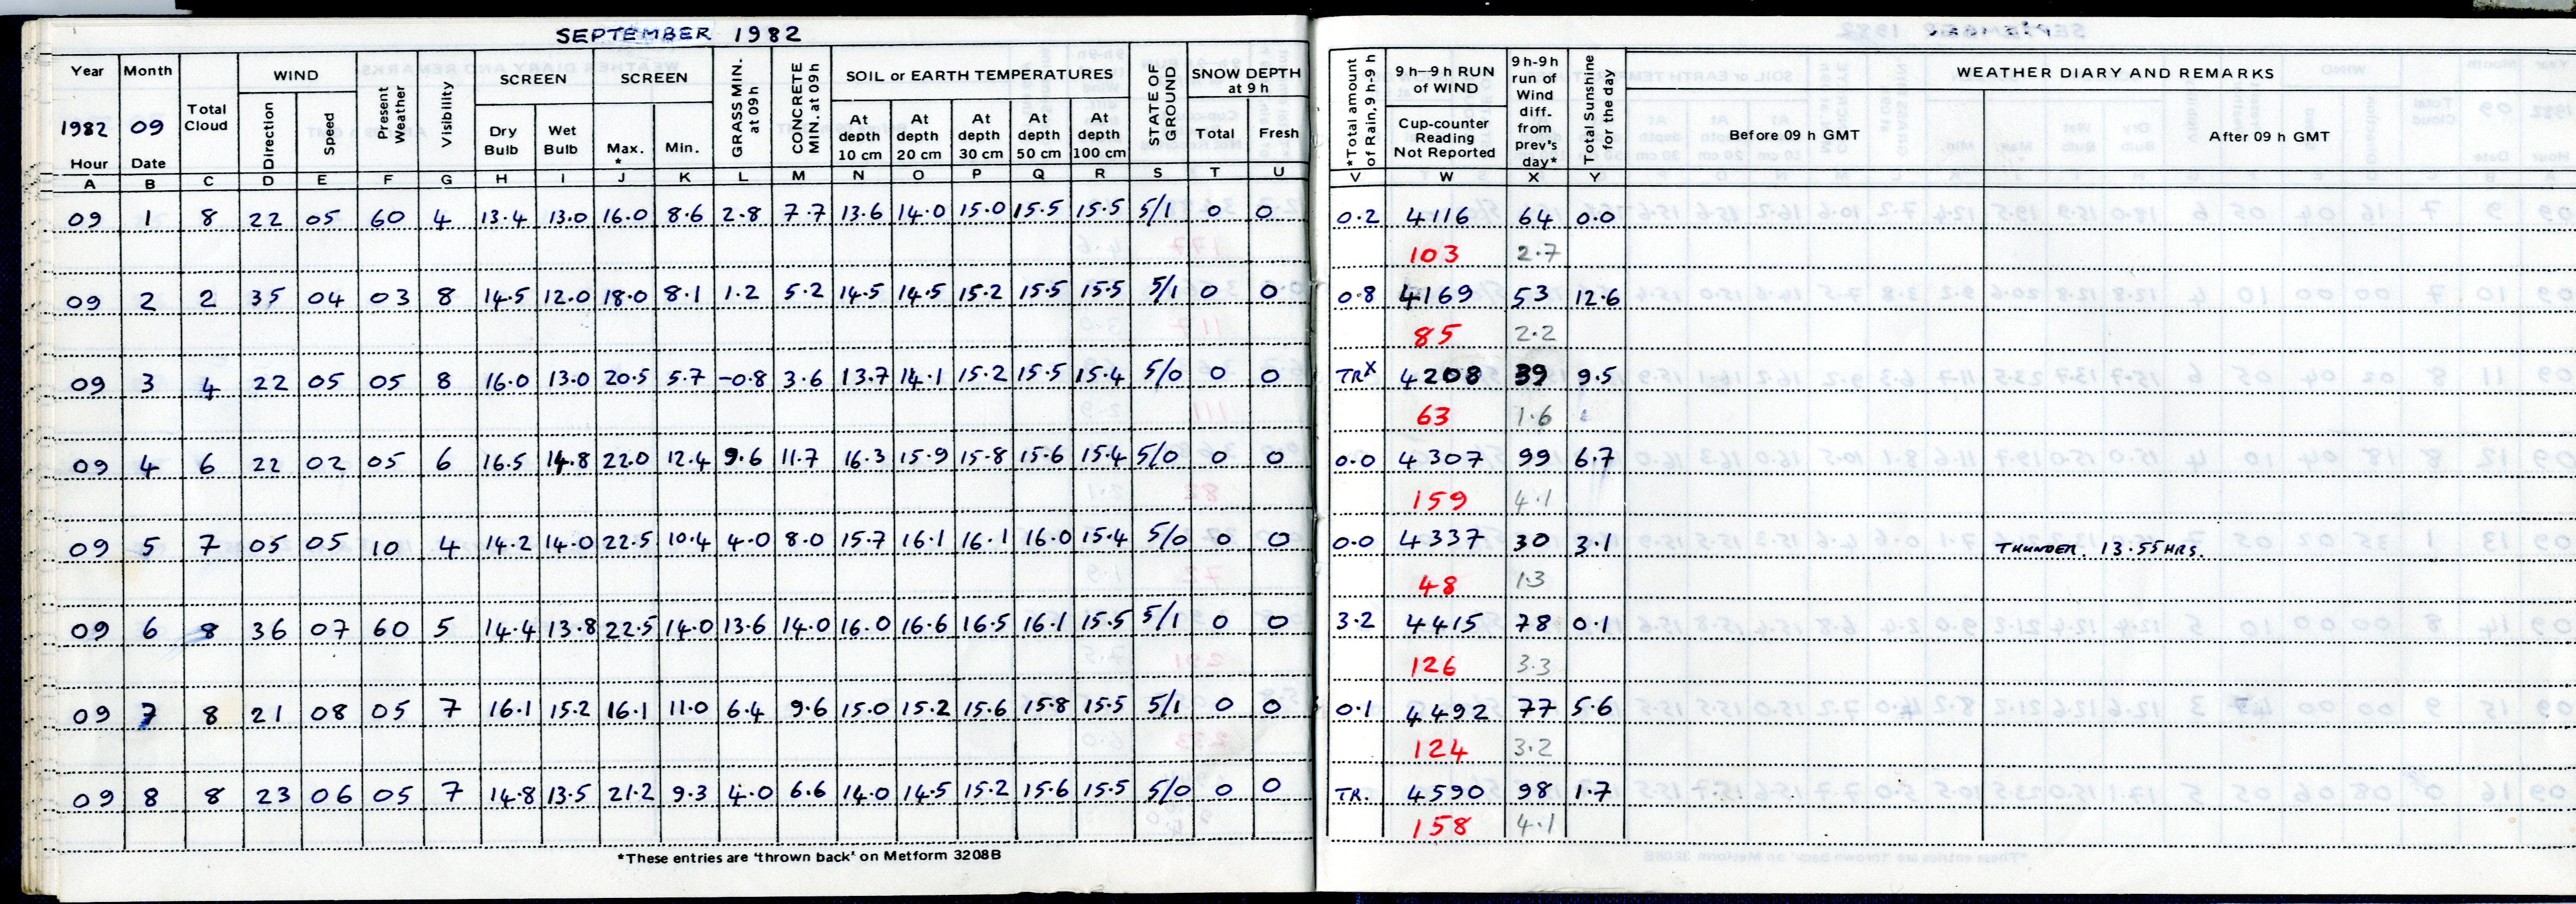 SEPTEMBER 1982
Year Month Total Cloud WIND Direction Speed Present Weather Visibility SCREEN Dry Bulb Wet Bulb SCREEN Max. * Min. GRASS MIN. at 09h CONCRETE MIN. at 09h SOIL or EARTH TEMPERATURES At depth 10 cm At depth 20 cm At depth 30 cm At depth 50 cm At depth 100 cm STATE OF GROUND SNOW DEPTH at 9 h Total Fresh *Total amount of Rain, 9 h-9 h 9h–9h RUN of WIND Cup-counter Reading Not Reported 9h-9h run of Wind diff. from prev's day* Total Sunshine for the day WEATHER DIARY AND REMARKS Before 09 h GMT After 09 h GMT
1982 09
Hour Date
A B C D E F G H I J K L M N O P Q R S T U V W X Y
09 1 8 22 05 60 4 13.4 13.0 16.0 8.6 2.8 7.7 13.6 14.0 15.0 15.5 15.5 5/1 0 0 0.2 4116 64 0.0
103 2.7
09 2 2 35 04 03 8 14.5 12.0 18.0 8.1 1.2 5.2 14.5 14.5 15.2 15.5 15.5 5/1 0 0 0.8 4169 53 12.6
85 2.2
09 3 4 22 05 05 8 16.0 13.0 20.5 5.7 -0.8 3.6 13.7 14.1 15.2 15.5 15.4 5/0 0 0 TRX 4208 39 9.5
63 1.6
09 4 6 22 02 05 6 16.5 14.8 22.0 12.4 9.6 11.7 16.3 15.9 15.8 15.6 15.4 5/0 0 0 0.0 4307 99 6.7
159 4.1
09 5 7 05 05 10 4 14.2 14.0 22.5 10.4 4.0 8.0 15.7 16.1 16.1 16.0 15.4 5/0 0 0 0.0 4337 30 3.1 THUNDER. 13.55 HRS.
48 1.3
09 6 8 36 07 60 5 14.4 13.8 22.5 14.0 13.6 14.0 16.0 16.6 16.5 16.1 15.5 5/1 0 0 3.2 4415 78 0.1
126 3.3
09 7 8 21 08 05 7 16.1 15.2 16.1 11.0 6.4 9.6 15.0 15.2 15.6 15.8 15.5 5/1 0 0 0.1 4492 77 5.6
124 3.2
09 8 8 23 06 05 7 14.8 13.5 21.2 9.3 4.0 6.6 14.0 14.5 15.2 15.6 15.5 5/0 0 0 TR. 4590 98 1.7
158 4.1
*These entries are 'thrown back' on Metform 3208B